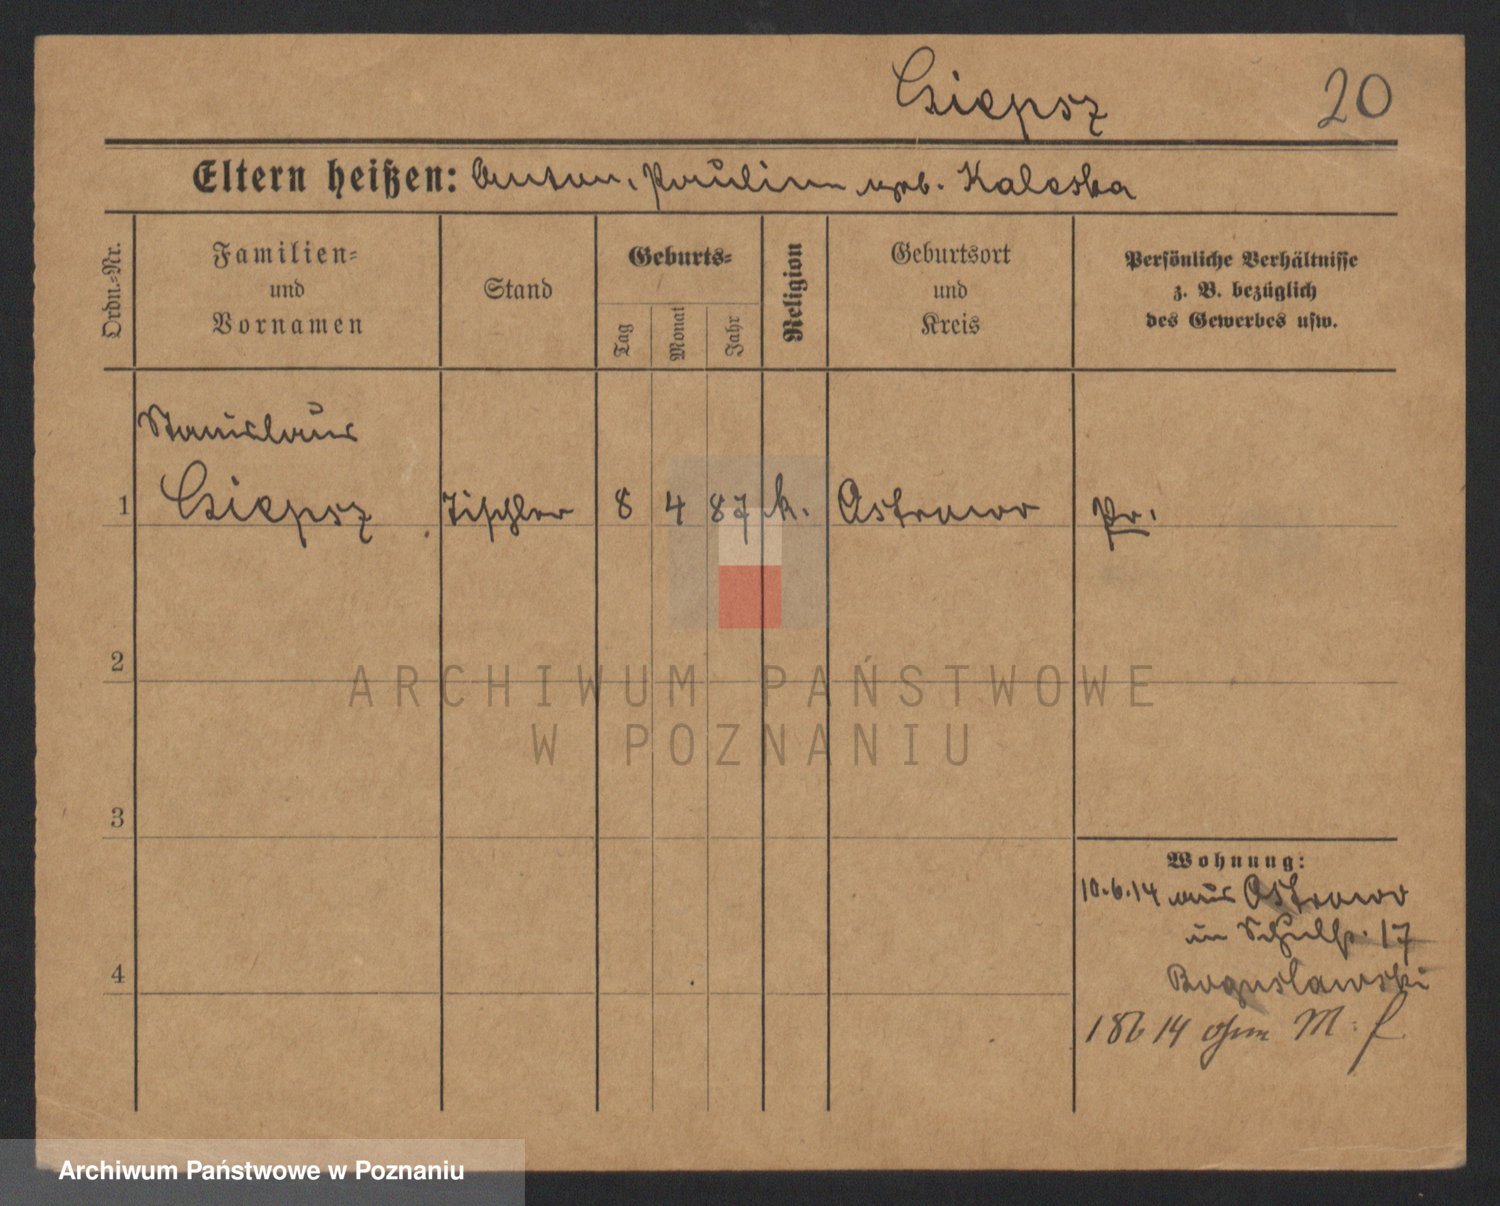 Csiepsz 20
Eltern heißen: Anton, Paulina geb. Kaleska
Ordn.=Nr.
Familien=
und
Vornamen
Stand
Geburts=
Tag
Monat
Jahr
Religion
Geburtsort
und
Kreis
Persönliche Verhältnisse
z. B. bezüglich
des Gewerbes usw.
Stanislaus
1 Csiepsz Tischler 8 4 87 k. Ostrowo Pr.
2
ARCHIWUM PAŃSTWOWE
W POZNANIU
3
Wohnung:
10.6.14 aus Ostrowo
in Schulstr. 17
4
Boguslawski
18 6 14 ohne M: f
Archiwum Państwowe w Poznaniu